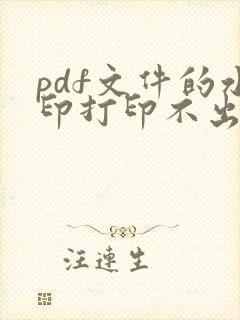 pdf文件的水
印打印不出
汪连生